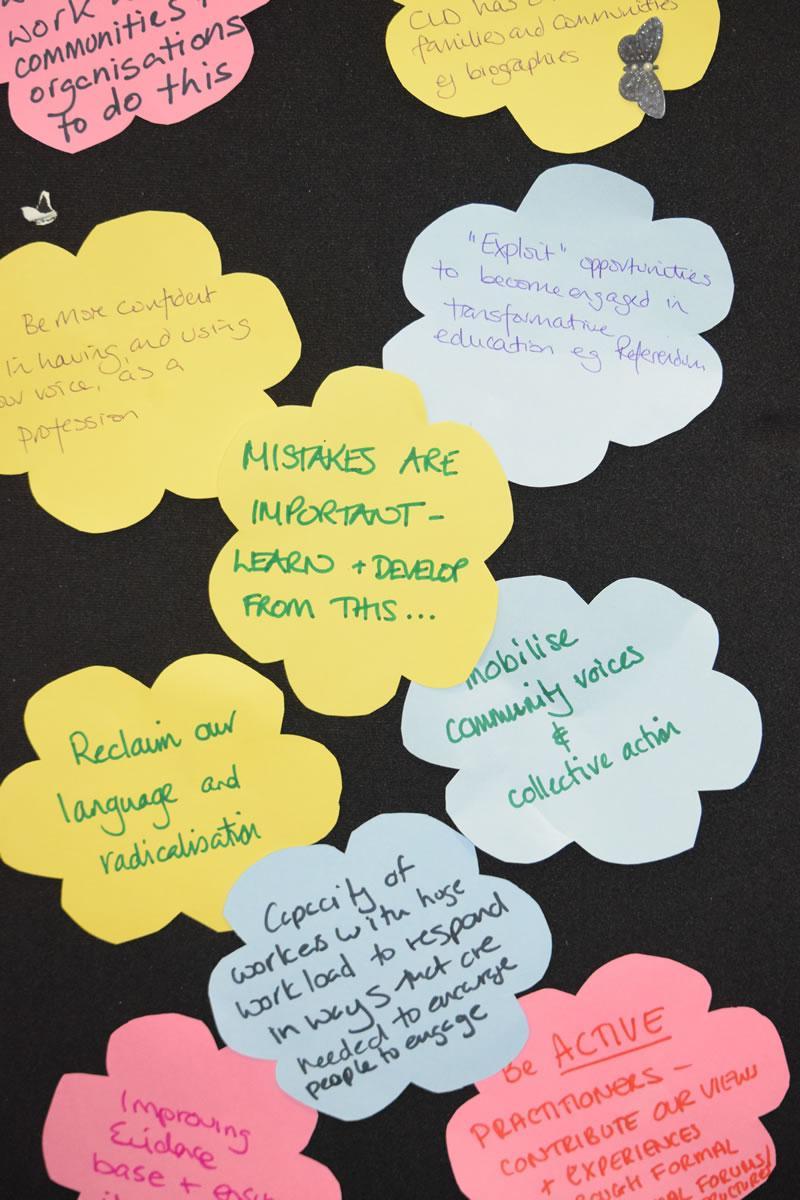 work
communities
organisations
to do this
CLD has
families and communities
eg biographies
"Exploit" opportunities
to become engaged in
transformative
education eg Referendum
Be More confident
in having, and using
our voice, as a
profession
MISTAKES ARE
IMPORTANT -
LEARN + DEVELOP
FROM THIS...
mobilise
community voices
&
collective action
Reclaim our
language and
radicalisation
Capacity of
workers with huge
workload to respond
in ways that are
needed to encourage
people to engage
Be ACTIVE
PRACTITIONERS -
CONTRIBUTE OUR VIEWS
+ EXPERIENCES
FORMAL
FORUMS/
Improving
Evidence
base +